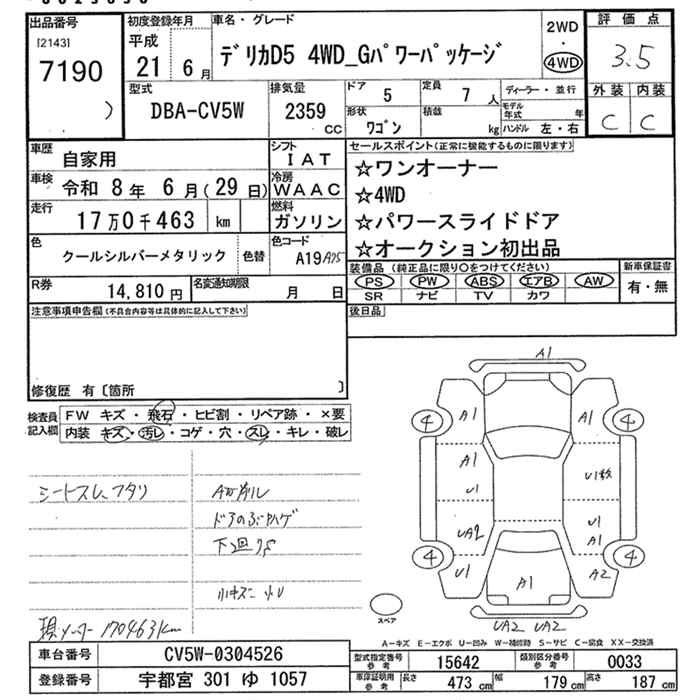 出品番号
[2143]
7190
)
初度登録年月
平成
21年 6月
車名・グレード
デリカD5 4WD_Gパワーパッケージ
2WD
・
4WD
評価点
3.5
外装 内装
C C
型式
DBA-CV5W
排気量
2359
CC
ドア
5
定員
7人
形状
ワゴン
積載
kg
ディーラー・並行
モデル年式 年
ハンドル 左・右
車歴
自家用
シフト
IAT
車検
令和 8年 6月(29日)
冷房
WAAC
走行
17万0千463 km
燃料
ガソリン
色
クールシルバーメタリック
色替
色コード
A19 A75
R券
14,810円
名変通知期限
月 日
セールスポイント(正常に機能するものに限ります)
☆ワンオーナー
☆4WD
☆パワースライドドア
☆オークション初出品
装備品(純正品に限り○をつけてください)
PS PW ABS エアB AW
SR ナビ TV カワ
新車保証書
有・無
後日品
注意事項申告欄(不具合内容等は具体的に記入して下さい)
修復歴 有〔箇所 〕
検査員記入欄
FW キズ・飛石・ヒビ割・リペア跡・×要
内装 キズ・汚レ・コゲ・穴・スレ・キレ・破レ
シートスレ、フタリ
ドアのぶハゲ
下回サビ
現メーター 170463km
A1
4 A1 A1 4
A1
U1
U1
UA2
U1
A1
4 U1 A1 A2 4
スペア
UA2 UA2
A-キズ E-エクボ U-凹み W-補修跡 S-サビ C-腐食 XX-交換済
車台番号
CV5W-0304526
登録番号
宇都宮 301 ゆ 1057
型式指定番号
参考
15642
類別区分番号
参考
0033
車庫証明用
参考
長さ 473cm
幅 179cm
高さ 187cm